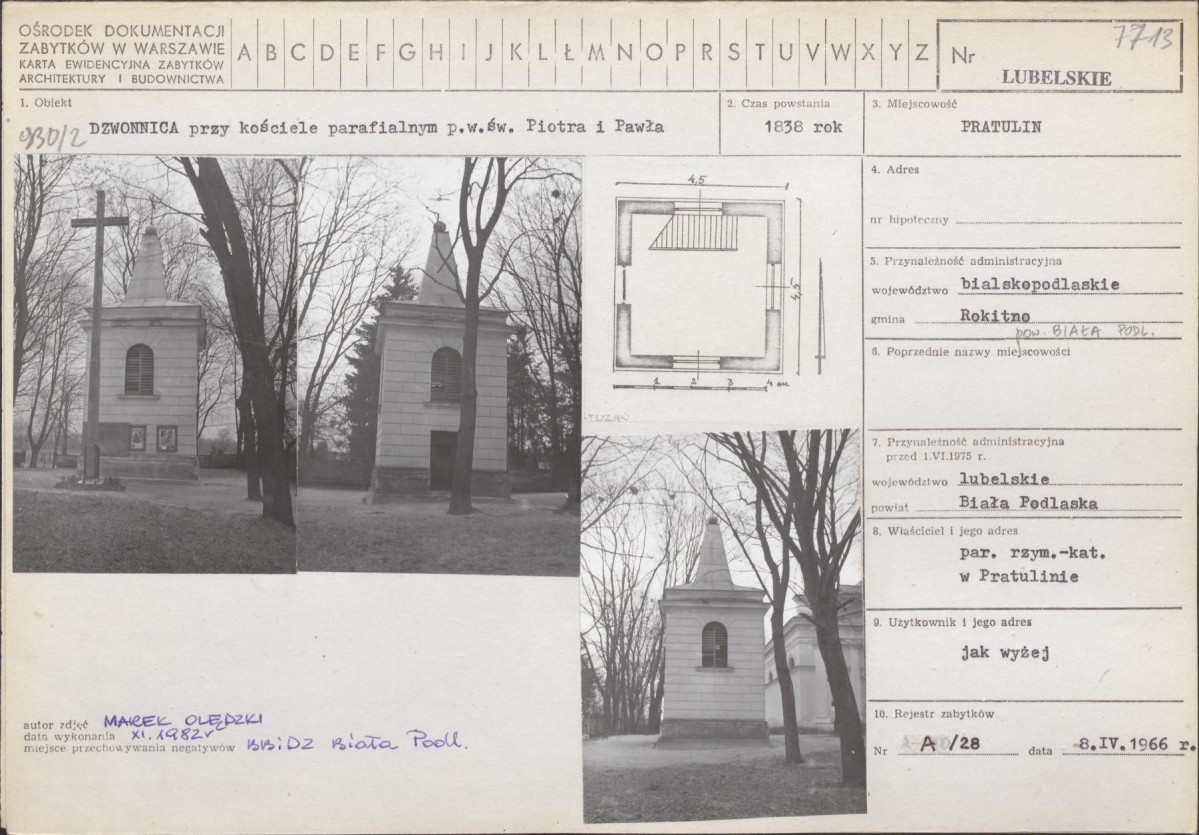 OŚRODEK DOKUMENTACJI
ZABYTKÓW W WARSZAWIE
KARTA EWIDENCYJNA ZABYTKÓW
ARCHITEKTURY I BUDOWNICTWA
A B C D E F G H I J K L Ł M N O P R S T U V W X Y Z
Nr 7713
LUBELSKIE
1. Obiekt
930/2 DZWONNICA przy kościele parafialnym p.w.św. Piotra i Pawła
2. Czas powstania
1838 rok
3. Miejscowość
PRATULIN
4. Adres
nr hipoteczny
5. Przynależność administracyjna
województwo bialskopodlaskie
gmina Rokitno
pow. BIAŁA PODL.
6. Poprzednie nazwy miejscowości
7. Przynależność administracyjna
przed 1.VI.1975 r.
województwo lubelskie
powiat Biała Podlaska
8. Właściciel i jego adres
par. rzym.-kat.
w Pratulinie
9. Użytkownik i jego adres
jak wyżej
10. Rejestr zabytków
Nr A/28 data 8.IV.1966 r.
4,5
4,5
1 2 3 4 m
autor zdjęć MAREK OLĘDZKI
data wykonania XI.1982r
miejsce przechowywania negatywów BBiDZ Biała Podl.